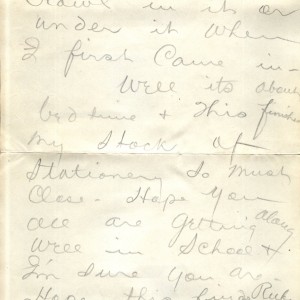 Crawl in it or
under it when
I first Came in -
Well its about
bed time & this finishes
my Stock of
Stationery So Must
Close - Hope You
all are Getting Along
Well in School &
I'm Sure you are -
Hope this finds Ruby